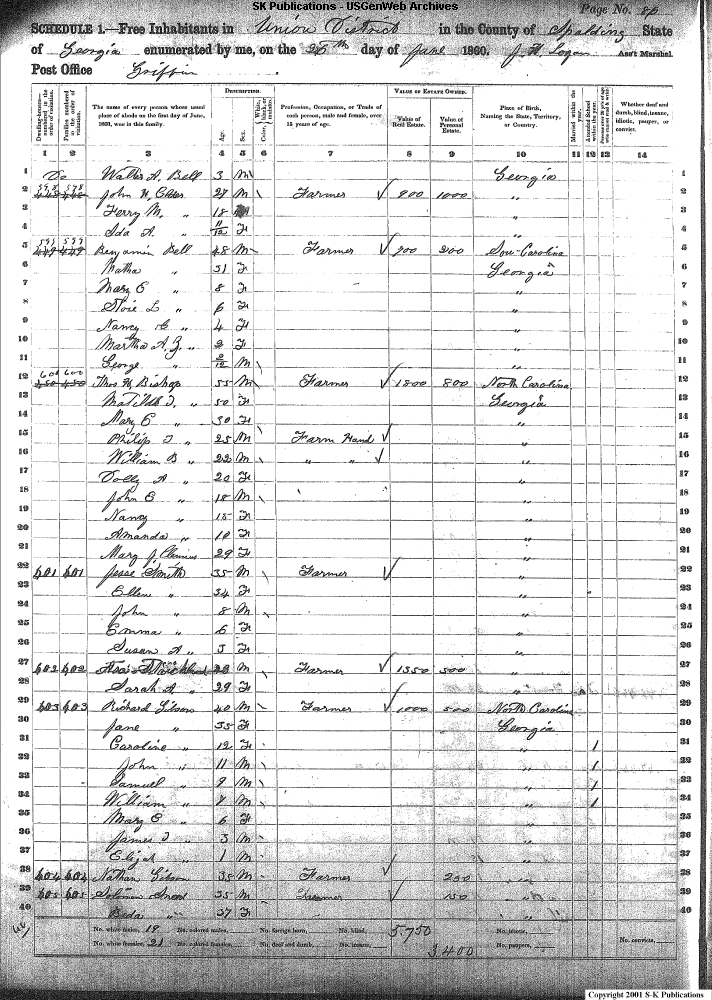 SK Publications - USGenWeb Archives
Page No. 86
SCHEDULE 1.—Free Inhabitants in Union District in the County of Spalding State
of Georgia enumerated by me, on the 25th day of June 1860. J. H. Logan Ass't Marshal.
Post Office Griffin
DESCRIPTION. VALUE OF ESTATE OWNED.
Dwelling-houses—numbered in the order of visitation. Families numbered in the order of visitation. The name of every person whose usual place of abode on the first day of June, 1860, was in this family. Age. Sex. Color, White, black, or mulatto. Profession, Occupation, or Trade of each person, male and female, over 15 years of age. Value of Real Estate. Value of Personal Estate. Place of Birth, Naming the State, Territory, or Country. Married within the year. Attended School within the year. Whether deaf and dumb, blind, insane, idiotic, pauper, or convict.
1 2 3 4 5 6 7 8 9 10 11 12 13 14
1 Do Walter A. Bell 3 M Georgia 1
2 598 598 John H. 27 M Farmer 900 1000 " 2
3 Ferry M. " 18 " 3
4 Ida A. " 11/12 F " 4
5 599 599 Benjamin Bell 48 M Farmer 700 200 Sou-Carolina 5
6 Matha " 31 F Georgia 6
7 Mary E " 8 F " 7
8 L " 6 F " 8
9 Nancy C " 4 F " 9
10 Martha A. " 2 F " 10
11 George " 2/12 M " 11
12 600 600 Thos H. Bishop 55 M Farmer 1800 800 North Carolina 12
13 Matilda " 50 F Georgia 13
14 Mary E " 30 F " 14
15 Philip T " 25 M Farm Hand " 15
16 William B " 22 M " " " 16
17 Dolly A " 20 F " 17
18 John E " 18 M " 18
19 Nancy " 15 F " 19
20 Amanda " 10 F " 20
21 Mary J. 29 F " 21
22 601 601 Jesse Smith 35 M Farmer " 22
23 Ellen " 34 F " 23
24 John " 8 M " 24
25 Emma " 6 F " 25
26 Susan A " 3 F " 26
27 602 602 Strickland 28 M Farmer 1350 500 " 27
28 Sarah A " 29 F " 28
29 603 603 Richard Gibson 40 M Farmer 1000 500 North Carolina 29
30 Jane " 35 F Georgia 30
31 Caroline " 12 F " 1 31
32 John " 11 M " 1 32
33 Samuel " 9 M " 1 33
34 William " 7 M " 1 34
35 Mary E " 6 F " 35
36 James T " 3 M " 36
37 Elijah " 1 M " 37
38 604 604 Nathan Gibson 38 M Farmer 250 " 38
39 605 605 Solomon 35 M Farmer 150 " 39
40 " 37 F " 40
No. white males, 19 No. colored males, No. foreign born, No. blind, 5.750 No. idiotic,
No. white females, 21 No. colored females, No. deaf and dumb, No. insane, 3400 No. paupers, No. convicts,
Copyright 2001 S-K Publications